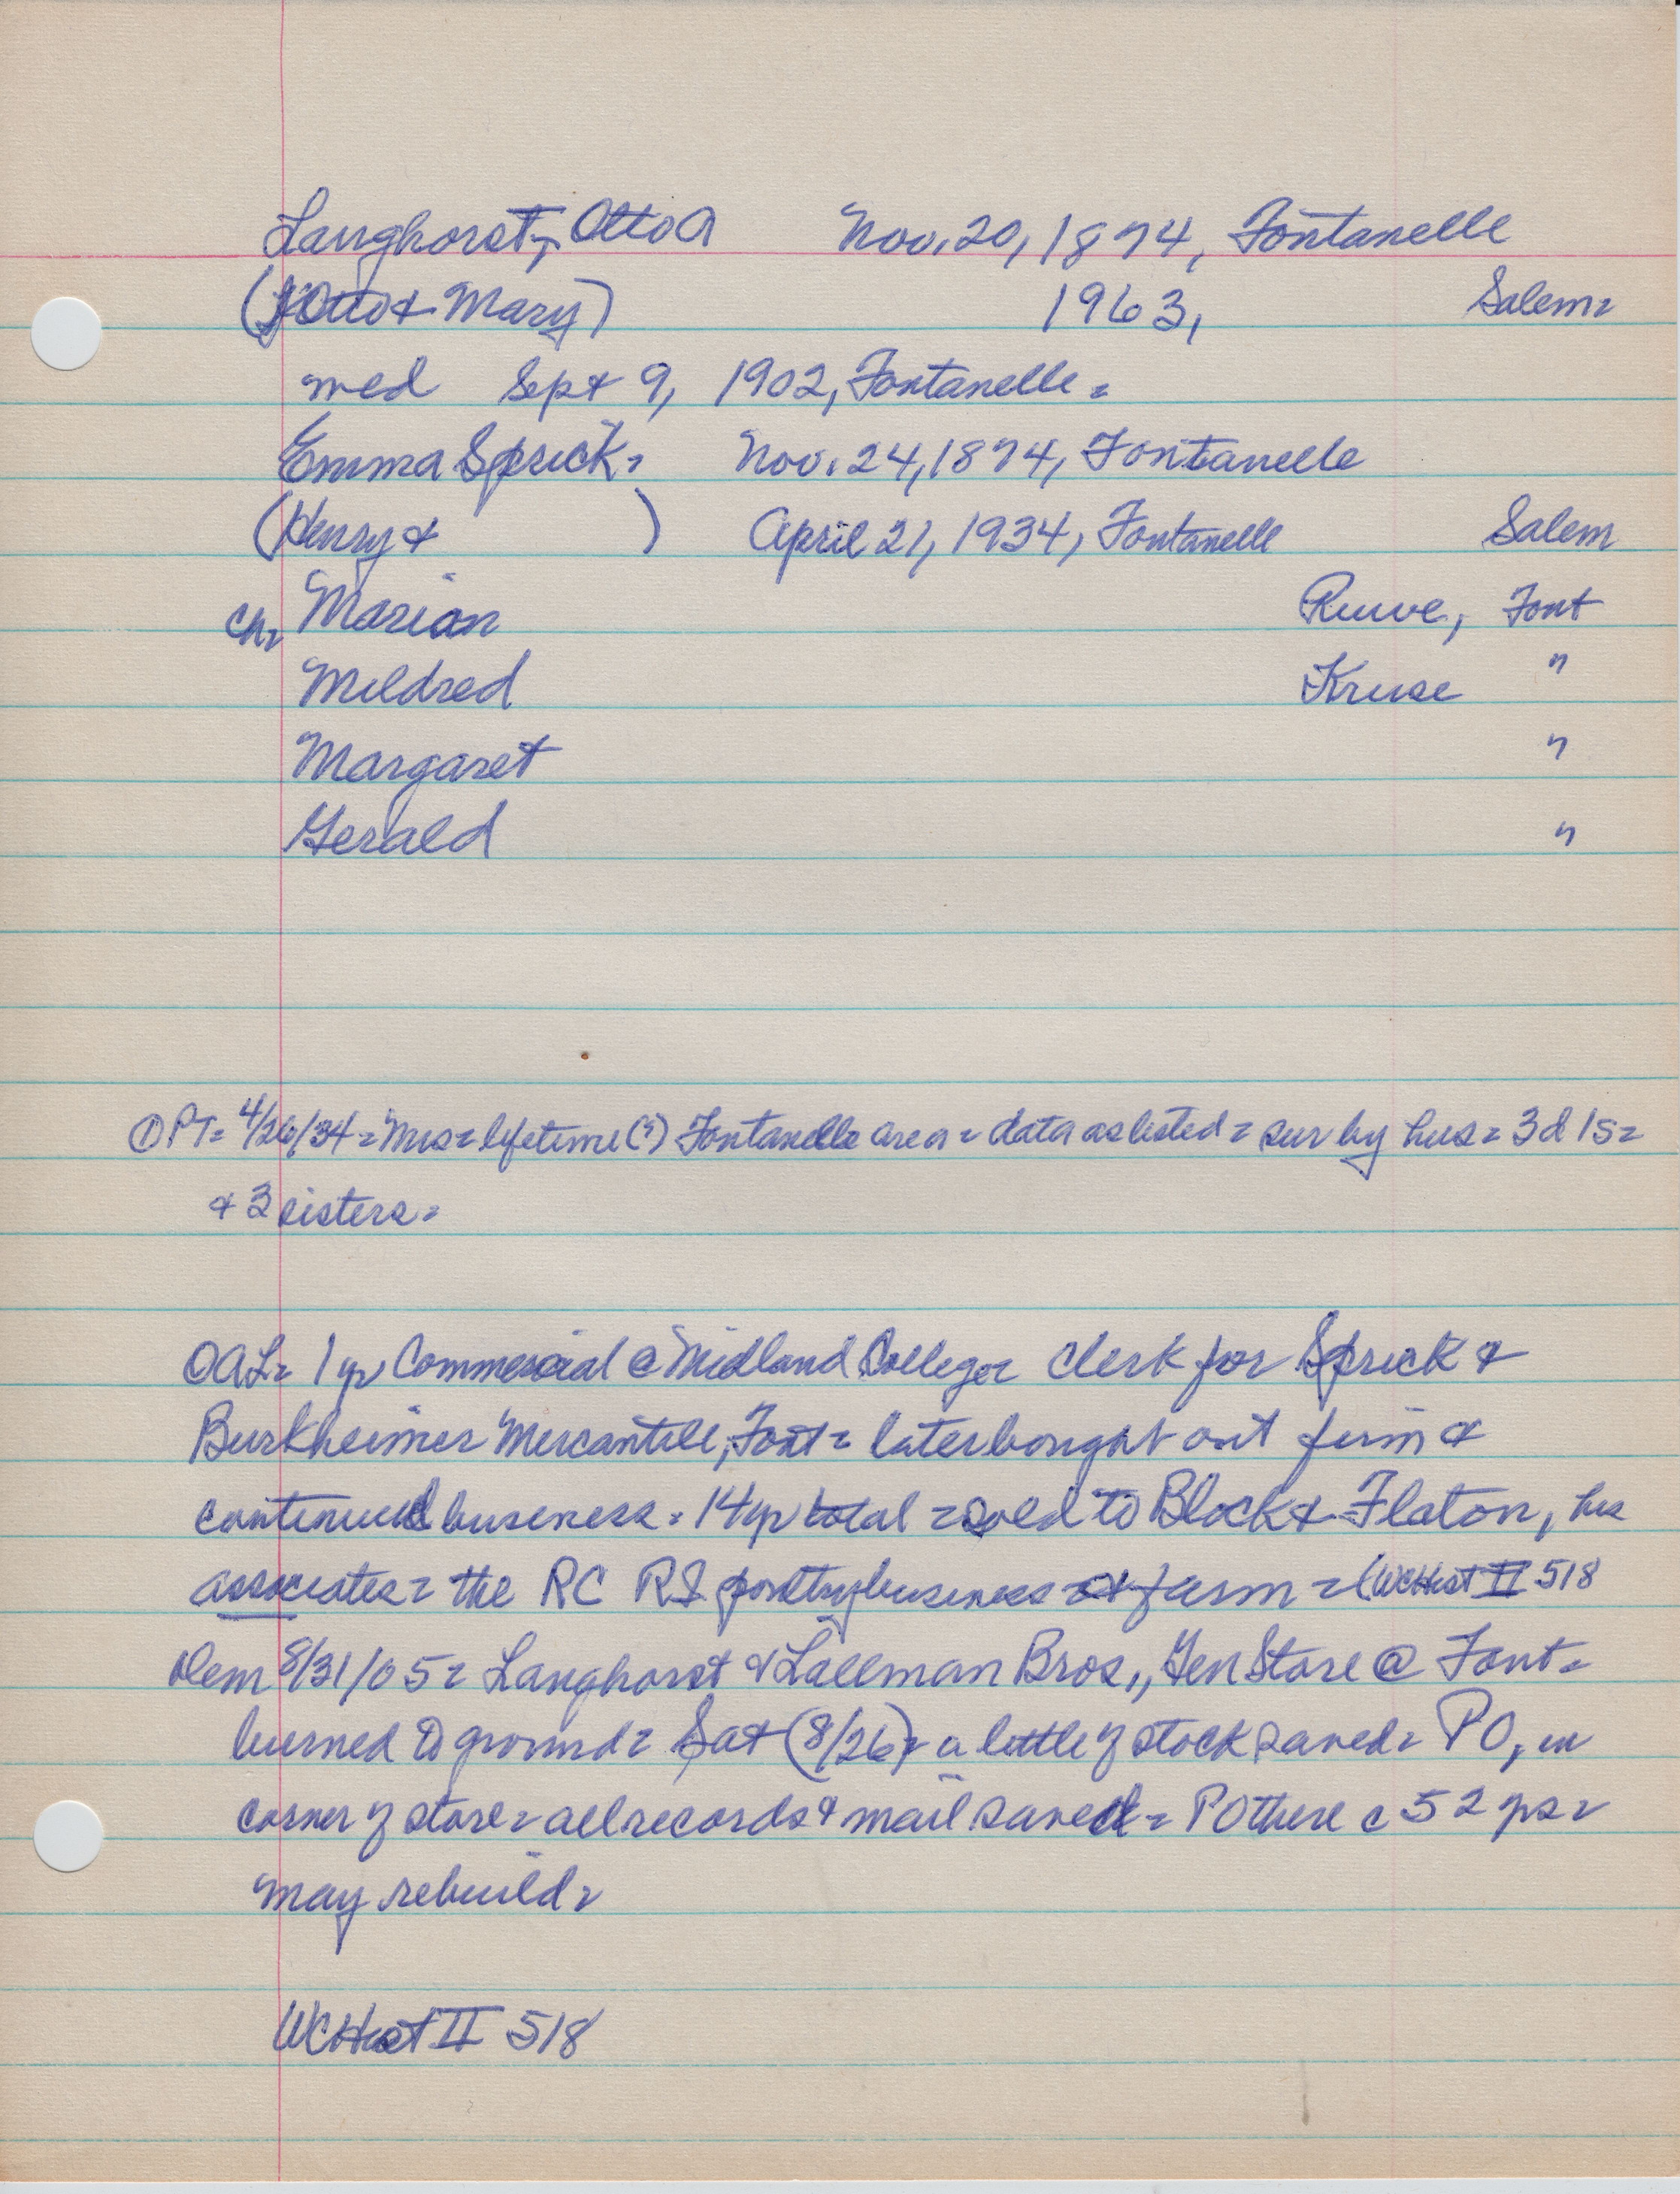 Langhorst, Otto A Nov. 20, 1874, Fontanelle
(Otto & Mary) 1963, Salem=
med Sept 9, 1902, Fontanelle=
Emma Sprick= Nov. 24, 1874, Fontanelle
(Henry & ) April 21, 1934, Fontanelle Salem
ch= Marian Ruwe, Font
Mildred Kruse "
Margaret "
Gerald "
① PT= 4/26/34= Mrs= lifetime(?) Fontanelle area= data as listed= sur by hus= 3d 1s=
& 3 sisters=
OAL= 1 yr Commercial @ Midland College= Clerk for Sprick &
Burkheimer Mercantile, Font= later bought out firm &
continued business= 14 yr total= sold to Block & Flaton, his
associates= the RC RI poultry business & farm= (WCHist II 518
Dem 8/31/05= Langhorst & Lallman Bros., Gen Store @ Font=
burned to ground= Sat (8/26)= a little of stock saved= PO, in
corner of store= all records & mail saved= PO there c 52 yrs=
may rebuild=
WCHist II 518